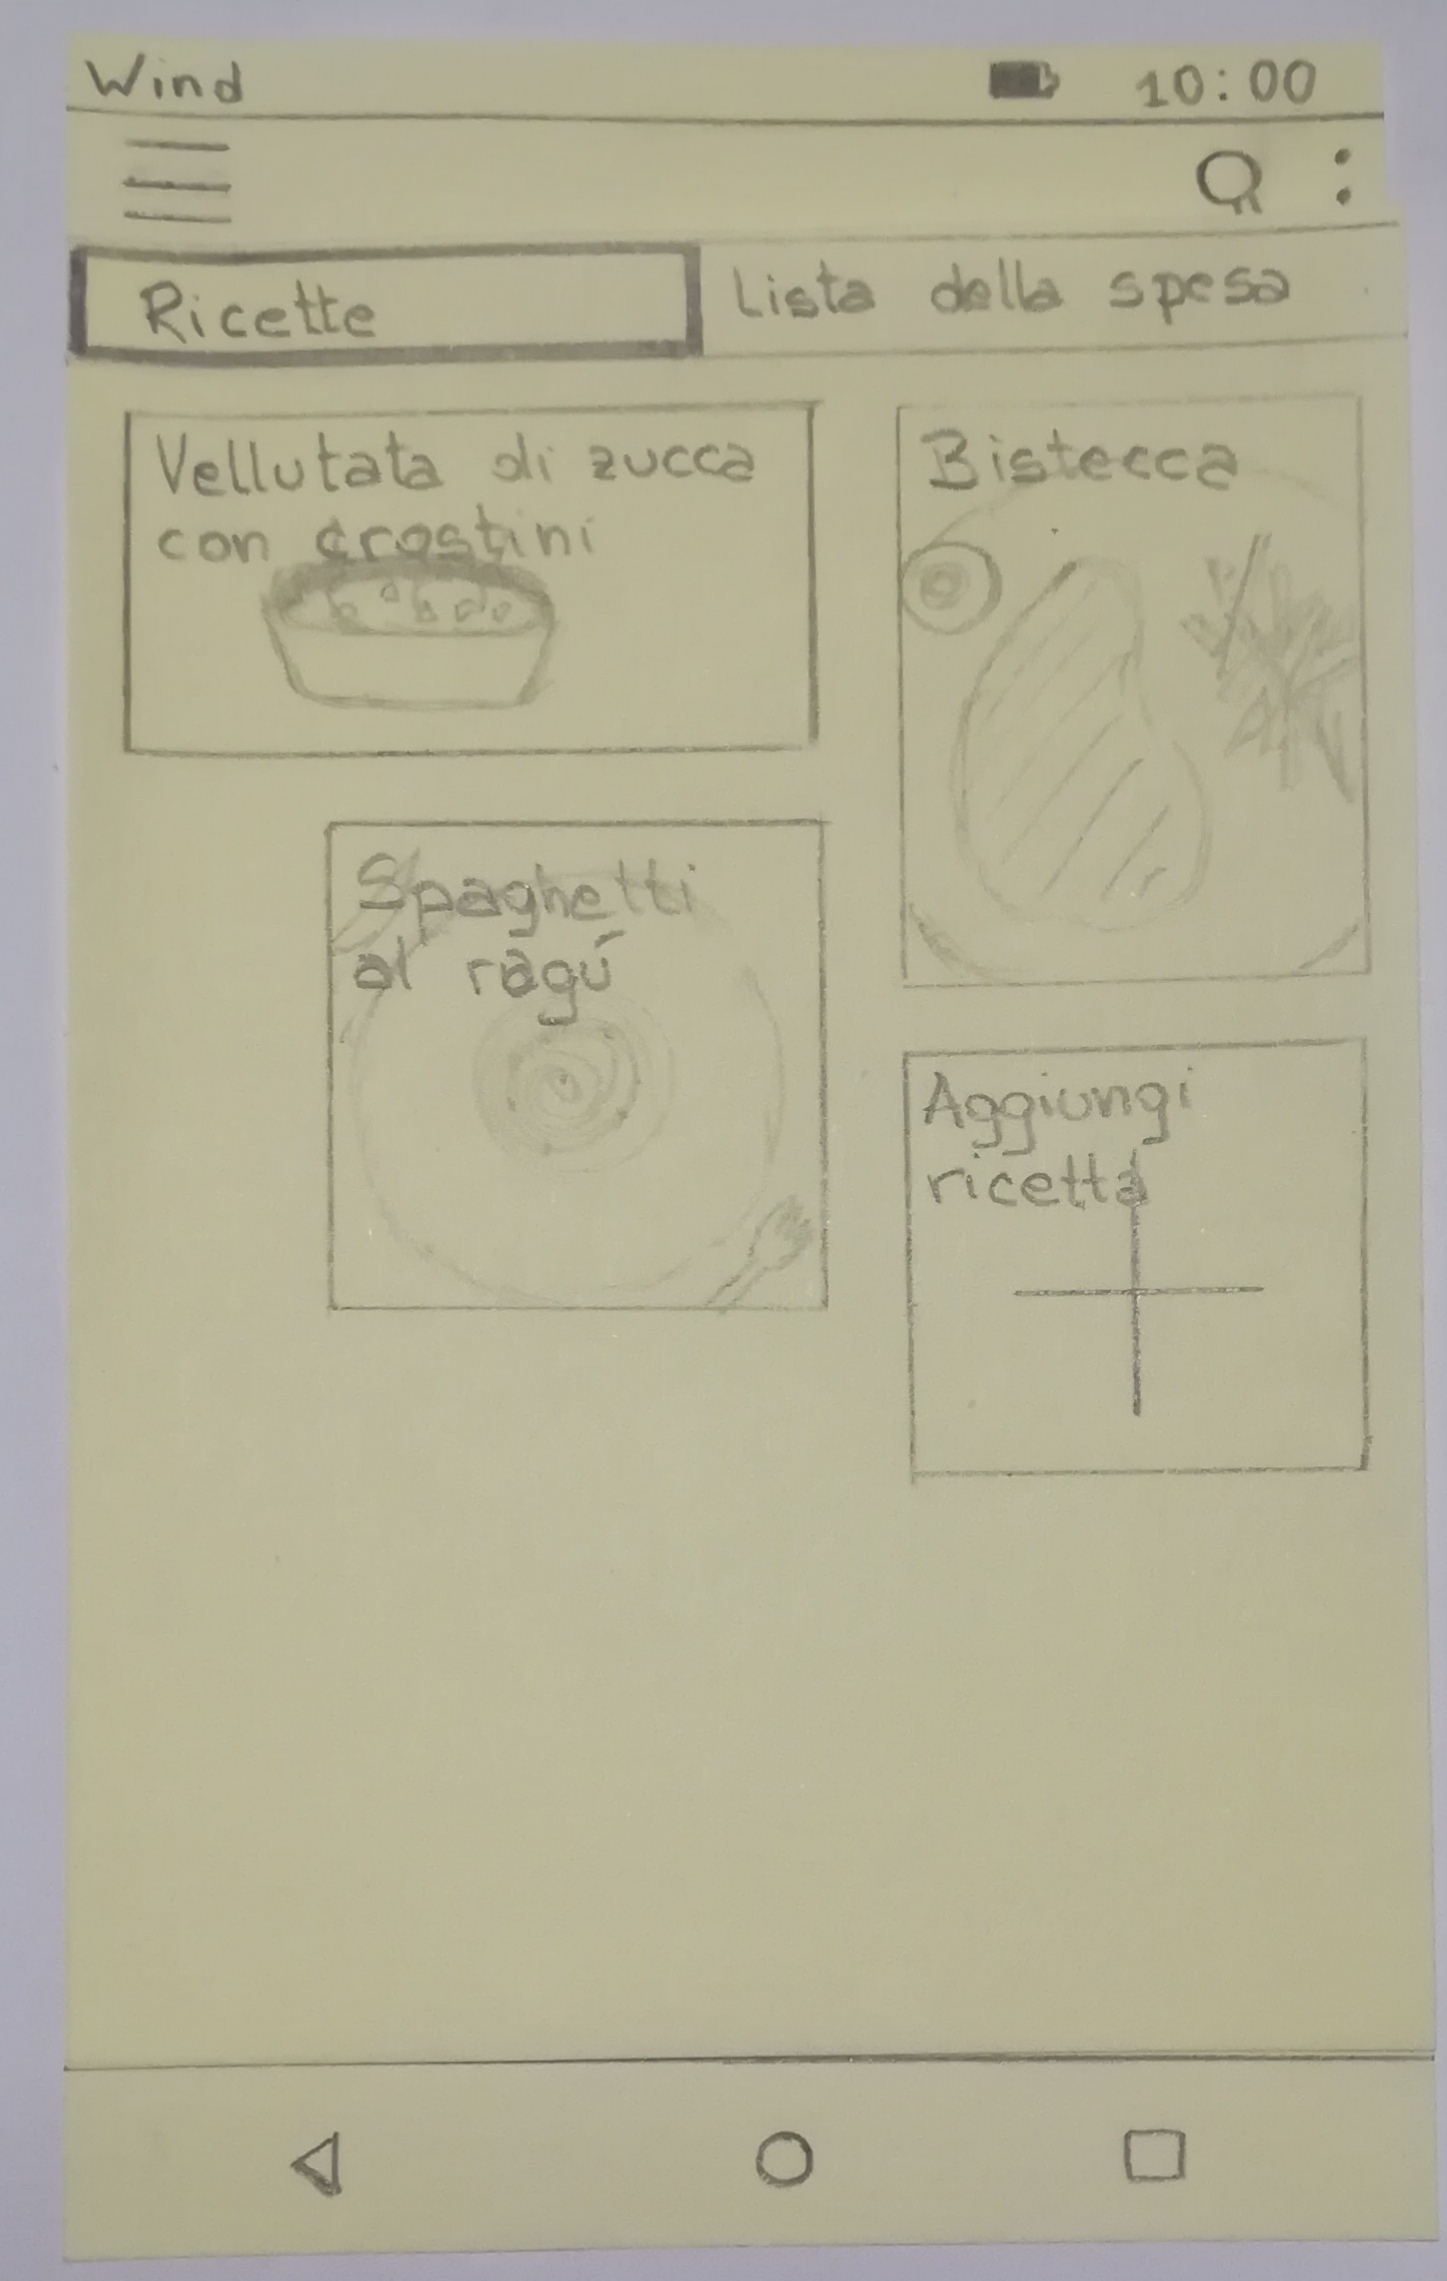 Wind 10:00
Ricette
Lista della spesa
Vellutata di zucca
con crostini
Bistecca
Spaghetti
al ragú
Aggiungi
ricetta